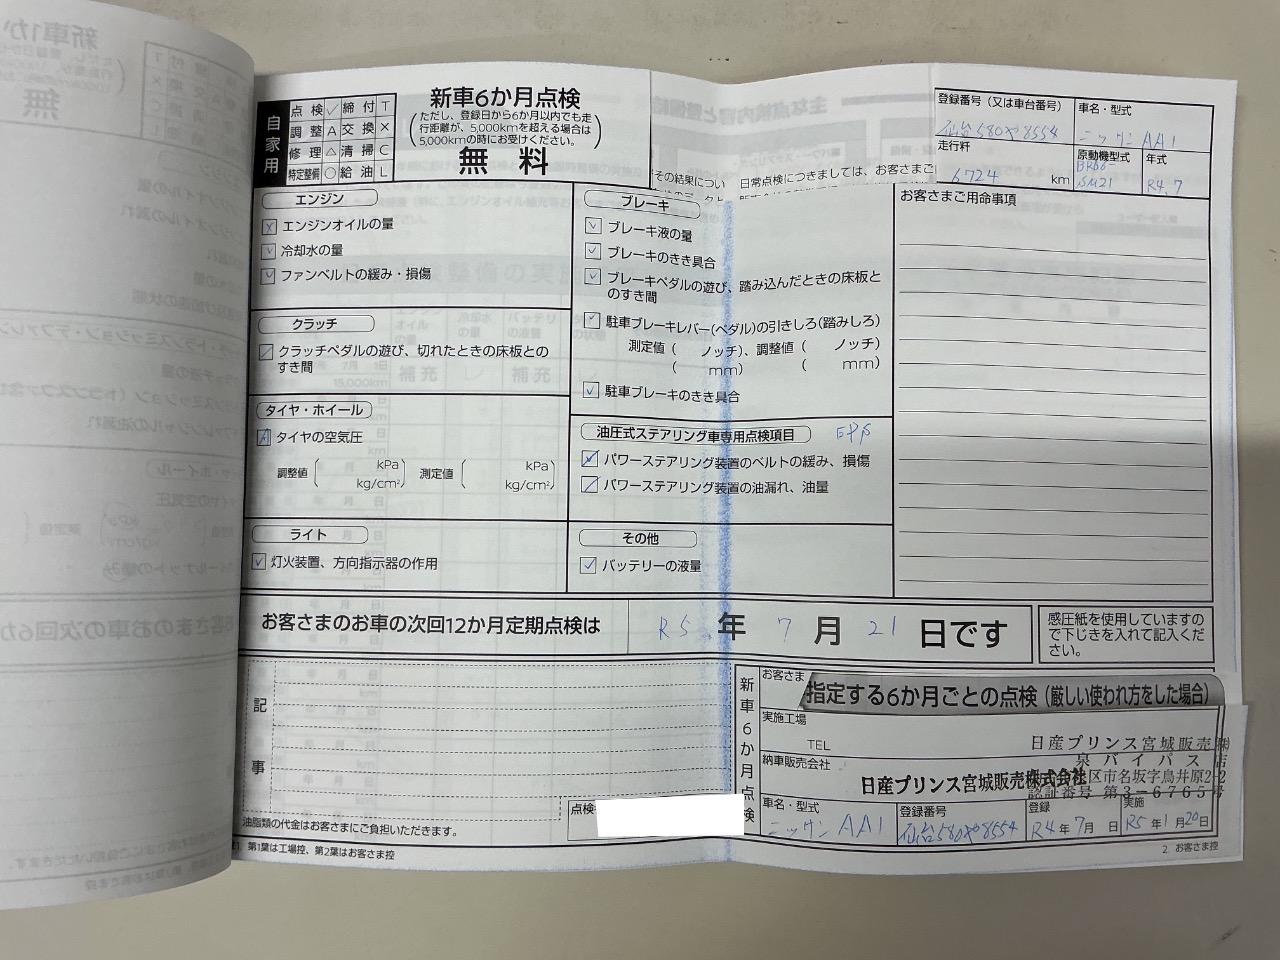 自家用
点検 ✓ 締付 T
調整 A 交換 ×
修理 △ 清掃 C
特定整備 ○ 給油 L
新車6か月点検
(ただし、登録日から6か月以内でも走
行距離が、5,000kmを超える場合は
5,000kmの時にお受けください。)
無料
その結果につい
日常点検につきましては、お客さまご
登録番号（又は車台番号）
仙台580や8554
車名・型式
ニッサン AA1
走行粁
6724 km
原動機型式
BR06-
SM21
年式
R4.7
エンジン
エンジンオイルの量
冷却水の量
ファンベルトの緩み・損傷
クラッチ
クラッチペダルの遊び、切れたときの床板との
すき間
タイヤ・ホイール
タイヤの空気圧
調整値 ( kPa kg/cm²) 測定値 ( kPa kg/cm²)
ライト
灯火装置、方向指示器の作用
ブレーキ
ブレーキ液の量
ブレーキのきき具合
ブレーキペダルの遊び、踏み込んだときの床板と
のすき間
駐車ブレーキレバー(ペダル)の引きしろ(踏みしろ)
測定値 ( ノッチ)、調整値 ( ノッチ)
( mm) ( mm)
駐車ブレーキのきき具合
油圧式ステアリング車専用点検項目 EPS
パワーステアリング装置のベルトの緩み、損傷
パワーステアリング装置の油漏れ、油量
その他
バッテリーの液量
お客さまご用命事項
お客さまのお車の次回12か月定期点検は R5 年 7 月 21 日です
感圧紙を使用していますの
で下じきを入れて記入くだ
さい。
記事
油脂類の代金はお客さまにご負担いただきます。
点検
新車6か月点検
お客さま
指定する6か月ごとの点検（厳しい使われ方をした場合）
実施工場
TEL
日産プリンス宮城販売㈱
泉バイパス店
区市名坂字鳥井原2-2
認証番号 第3-6765号
納車販売会社
日産プリンス宮城販売株式会社
車名・型式
ニッサン AA1
登録番号
仙台580や8554
登録
R4年7月 日
実施
R5年1月20日
注1. 第1葉は工場控、第2葉はお客さま控
2. お客さま控